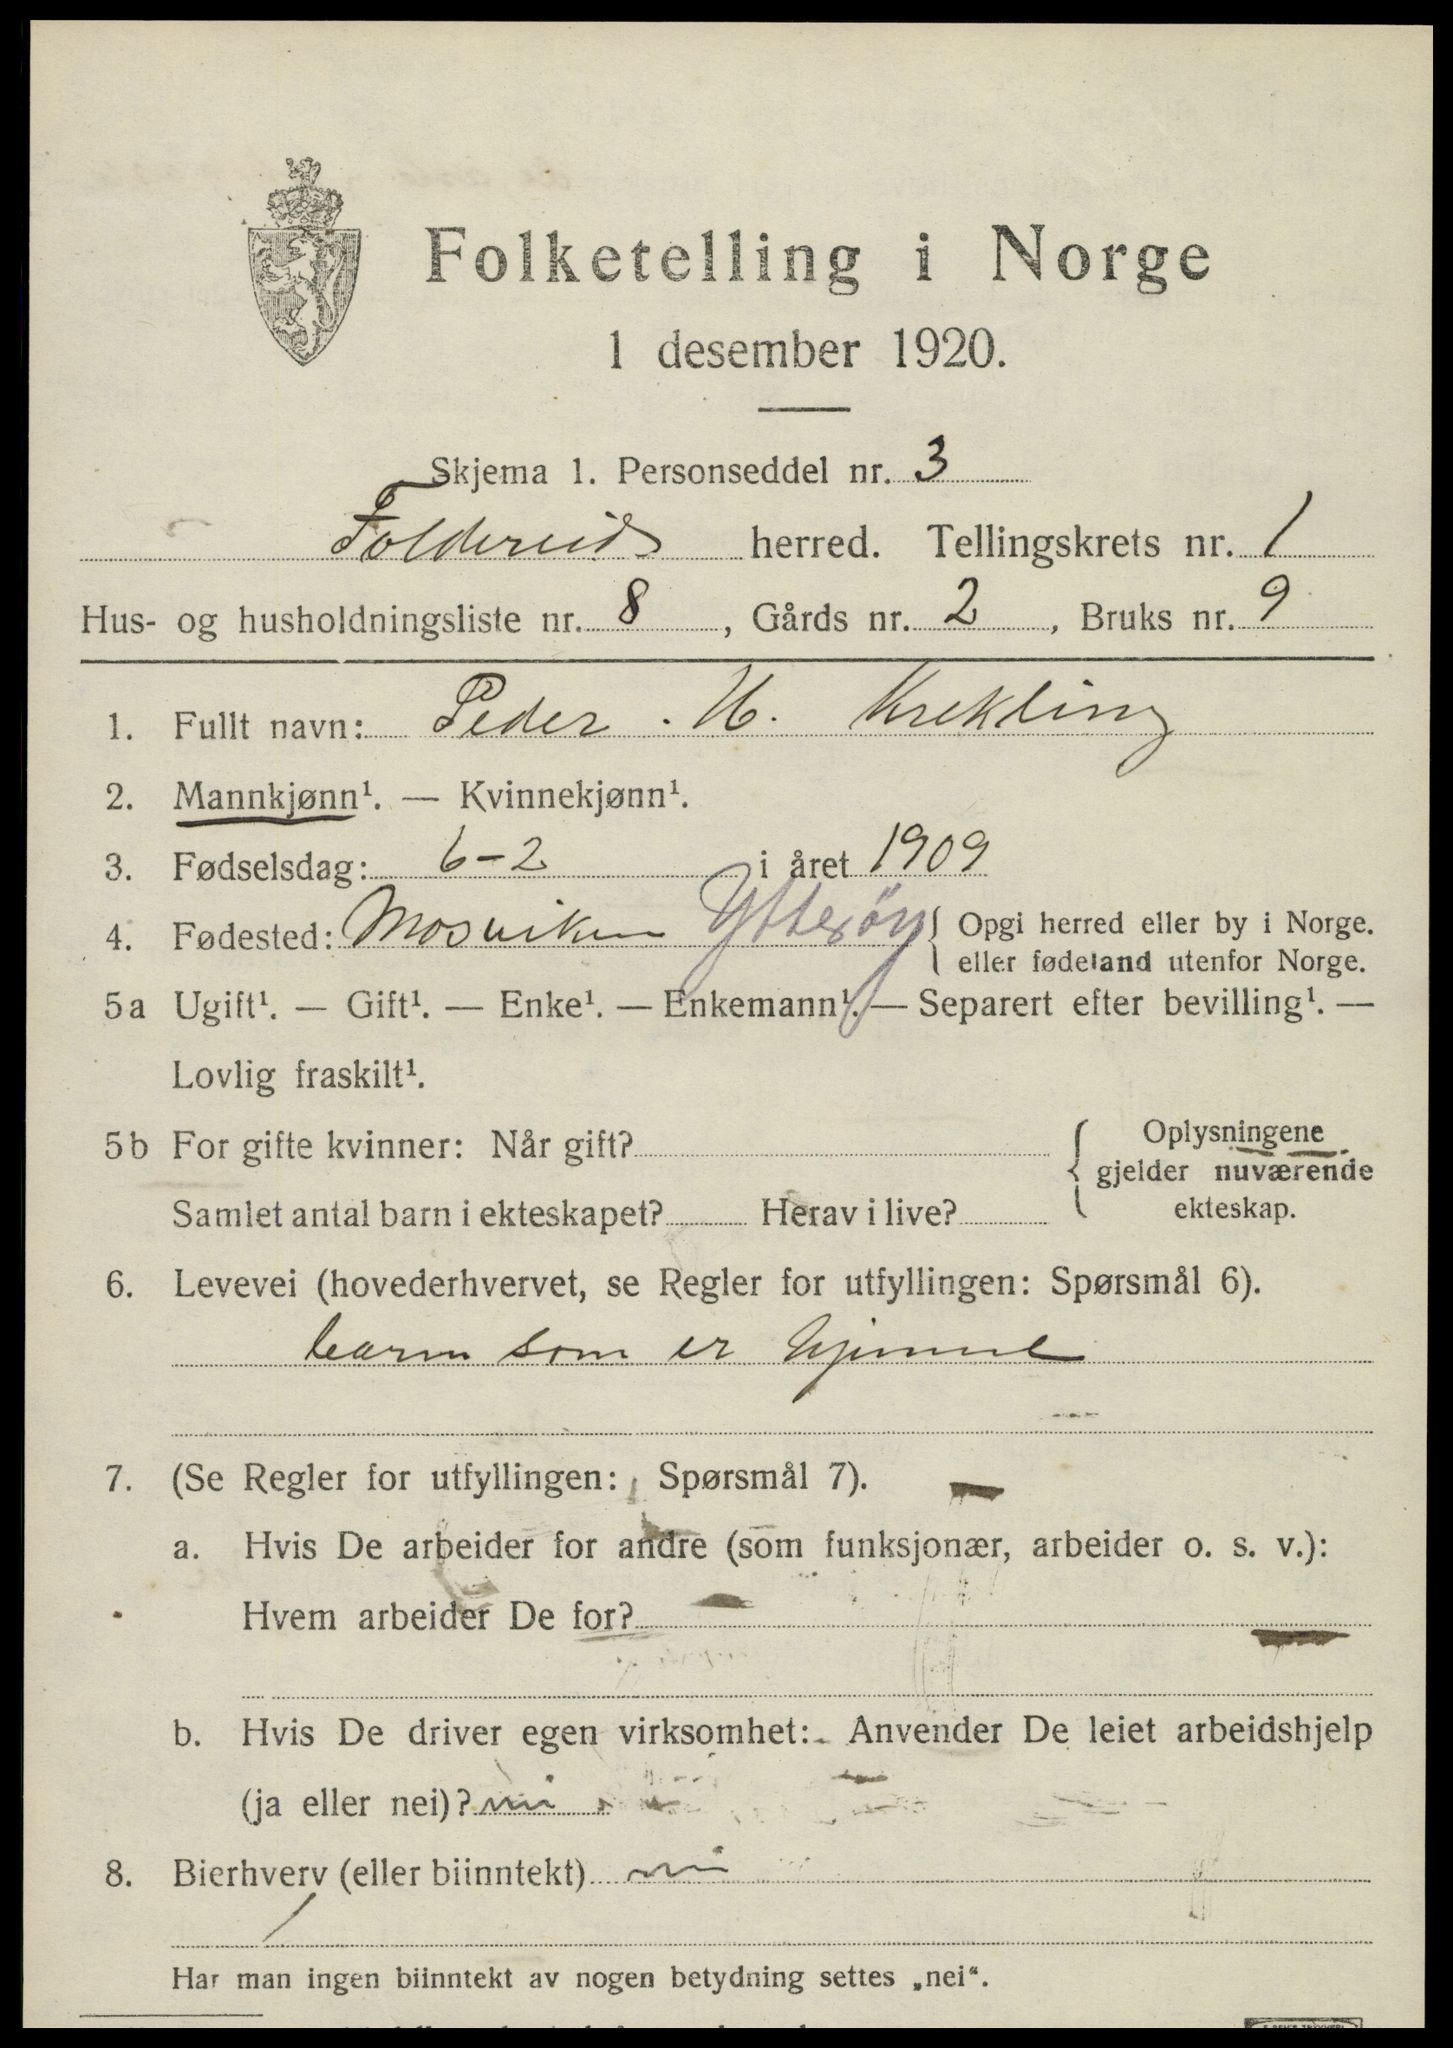 Folketelling i Norge
1 desember 1920.
Skjema 1. Personseddel nr. 3
Foldereid herred. Tellingskrets nr. 1
Hus- og husholdningsliste nr. 8, Gårds nr. 2, Bruks nr. 9
1. Fullt navn: Peder. H. Krekling
2. Mannkjønn¹. — Kvinnekjønn¹.
3. Fødselsdag: 6-2 i året 1909
4. Fødested: Mosviken Ytterøy { Opgi herred eller by i Norge.
eller fødeland utenfor Norge.
5a Ugift¹. — Gift¹. — Enke¹. — Enkemann¹. — Separert efter bevilling¹. —
Lovlig fraskilt¹.
5b For gifte kvinner: Når gift? { Oplysningene
gjelder nuværende
ekteskap.
Samlet antal barn i ekteskapet? Herav i live?
6. Levevei (hovederhvervet, se Regler for utfyllingen: Spørsmål 6).
barn som er hjemme
7. (Se Regler for utfyllingen: Spørsmål 7).
a. Hvis De arbeider for andre (som funksjonær, arbeider o. s. v.):
Hvem arbeider De for?
b. Hvis De driver egen virksomhet: Anvender De leiet arbeidshjelp
(ja eller nei)? nei
8. Bierhverv (eller biinntekt) nei
Har man ingen biinntekt av nogen betydning settes „nei“.